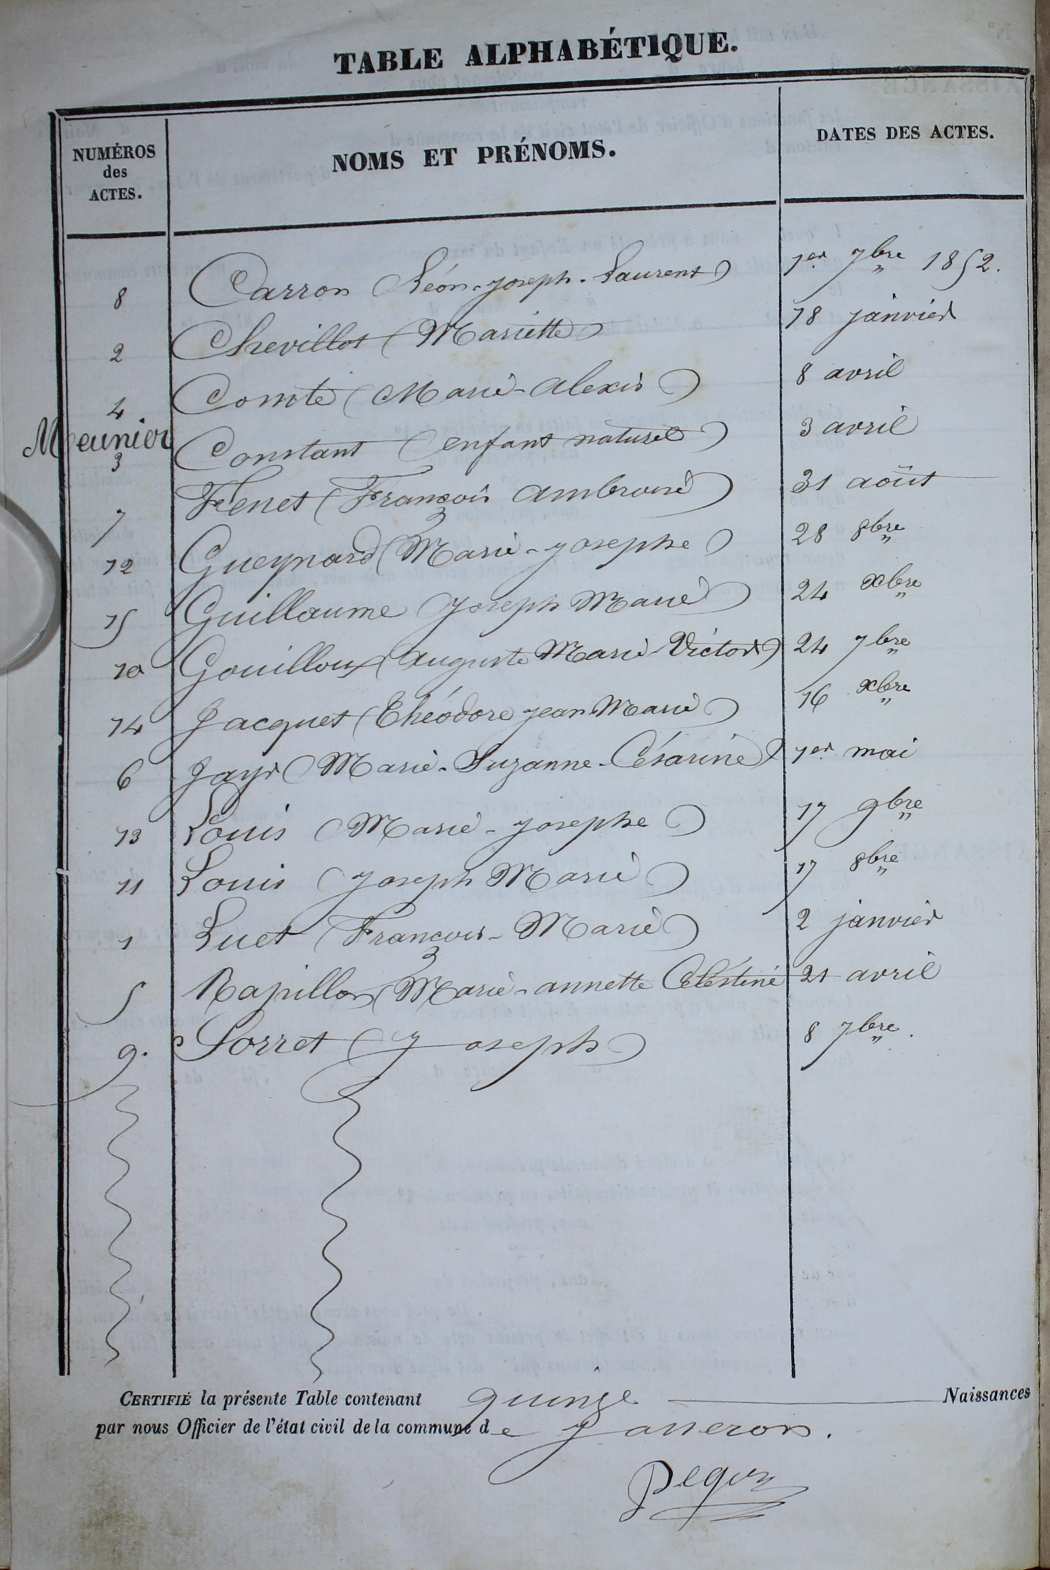 TABLE ALPHABÉTIQUE.
NUMÉROS des ACTES. NOMS ET PRÉNOMS. DATES DES ACTES.
8 Carron (Léon-joseph-Laurent) 1er 7bre 1852.
2 Chevillot (Mariette) 18 janvier
4 Comte (Marie-alexis) 8 avril
Meunier
3 Constant (enfant naturel) 3 avril
7 Fenet (François ambroise) 31 août
12 Gueynard (Marie-josephe) 28 8bre
15 Guillaume (joseph Marie) 24 xbre
10 Gouilloux (auguste Marie Victor) 24 7bre
14 Jacquet (Théodore jean Marie) 16 xbre
6 Jayr (Marie-Suzanne-Césarine) 1er mai
13 Louis (Marie-josephe) 17 9bre
11 Louis (joseph Marie) 17 8bre
1 Luet (François-Marie) 2 janvier
5 Rapillon (Marie-annette Célestine 21 avril
9. Sorret (joseph) 8 7bre.
CERTIFIÉ la présente Table contenant quinze Naissances
par nous Officier de l'état civil de la commune de jasseron.